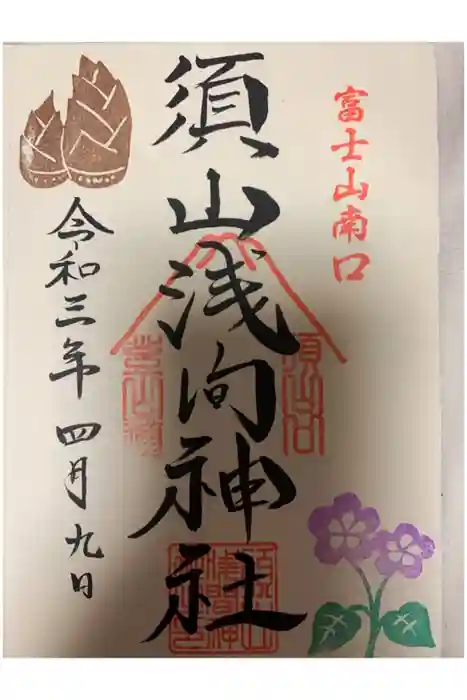 富士山南口
須山浅间神社
令和三年四月九日
須山口